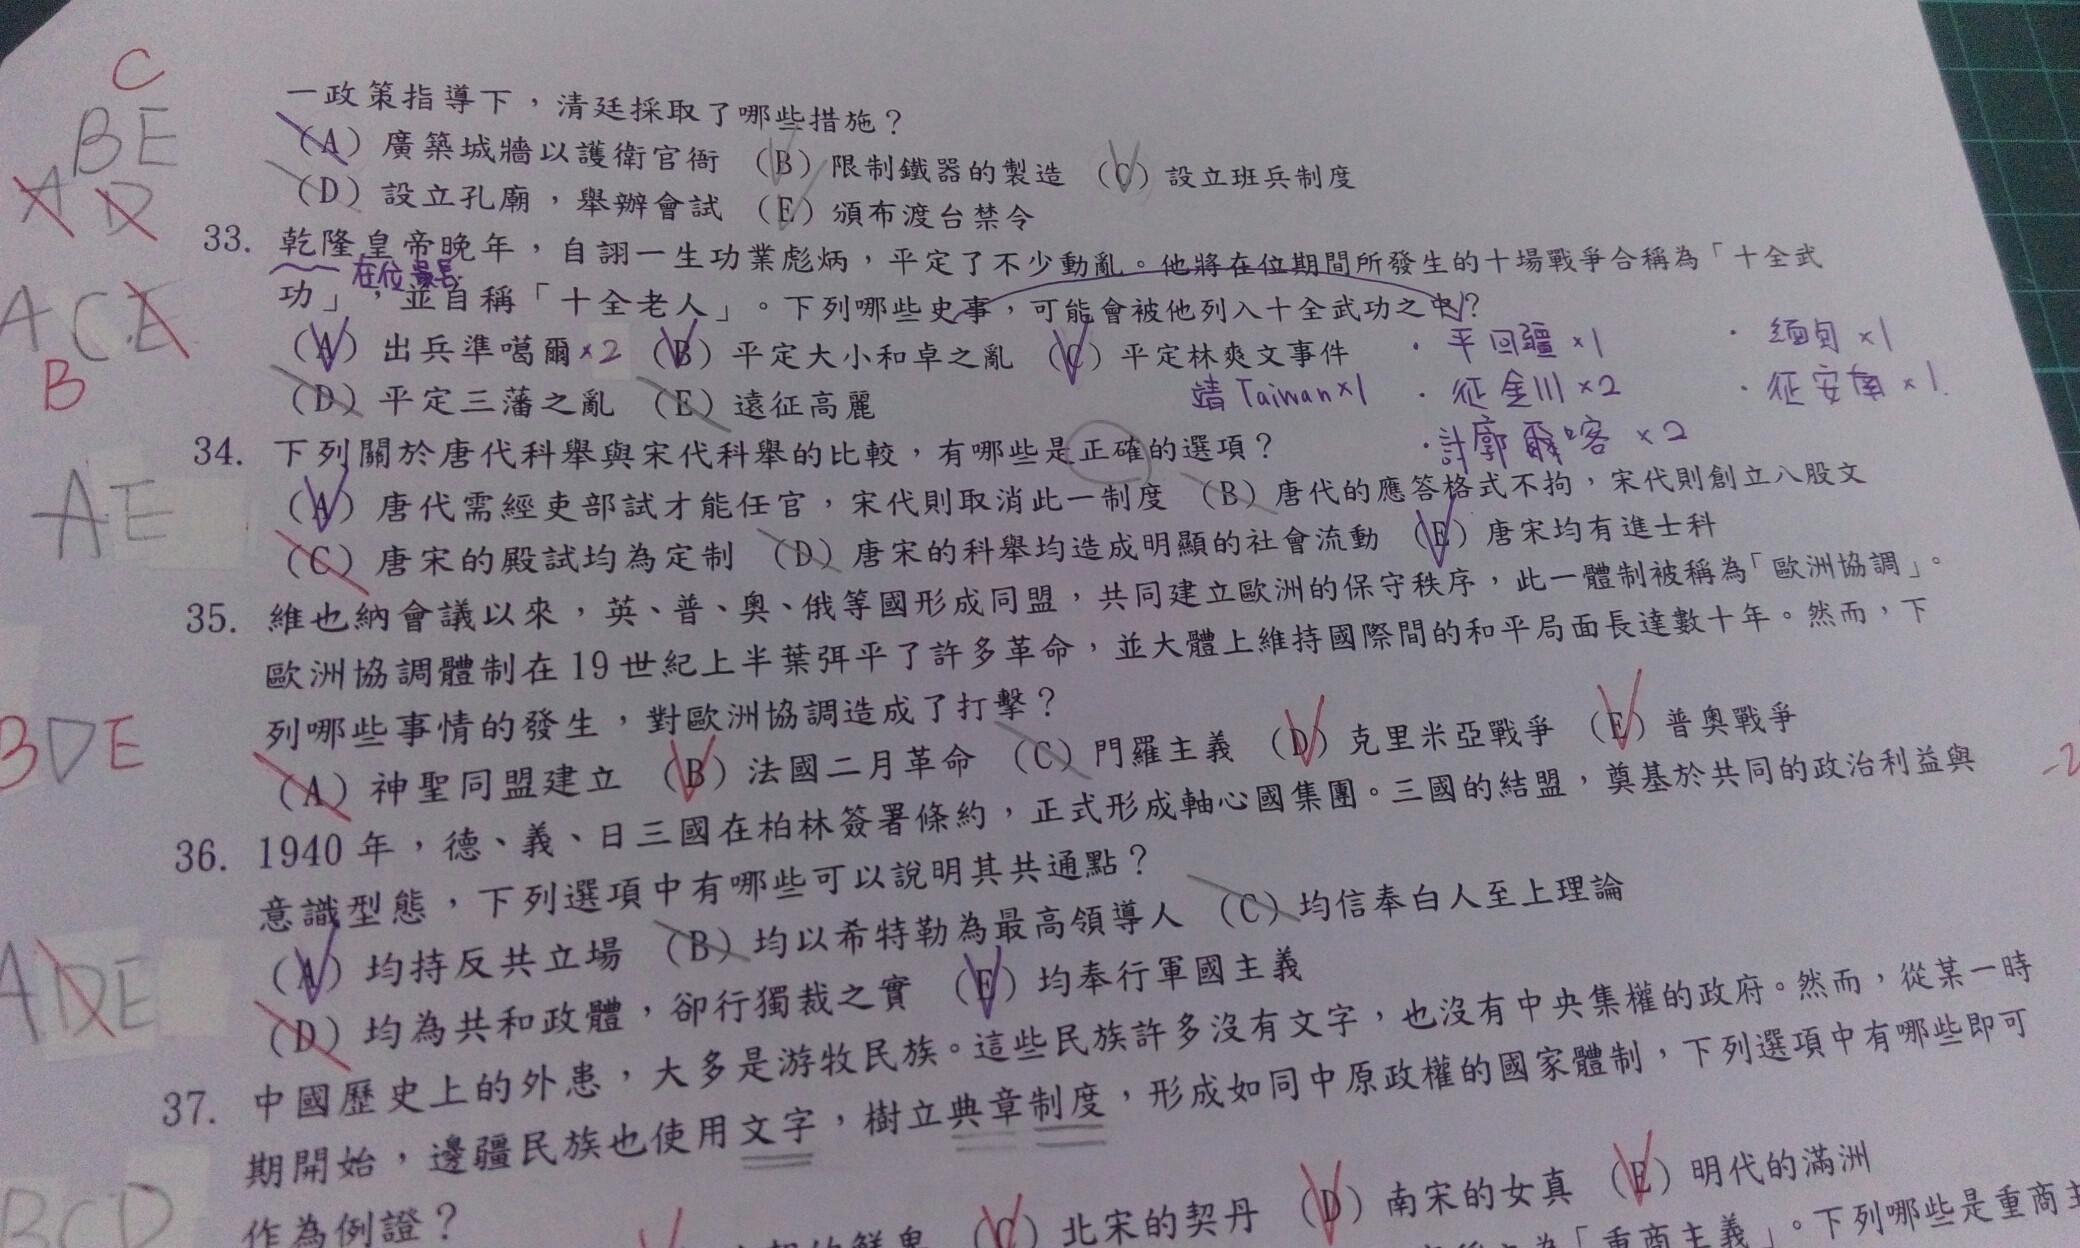 C
BE
A D
一政策指導下，清廷採取了哪些措施？
（A）廣築城牆以護衛官衙 （B）限制鐵器的製造 （C）設立班兵制度
（D）設立孔廟，舉辦會試 （E）頒布渡台禁令
33. 乾隆皇帝晚年，自詡一生功業彪炳，平定了不少動亂。他將在位期間所發生的十場戰爭合稱為「十全武
在位最長
功」，並自稱「十全老人」。下列哪些史事，可能會被他列入十全武功之中？
ACE
B
（A）出兵準噶爾×2 （B）平定大小和卓之亂 （C）平定林爽文事件
・平回疆×1 ・緬甸×1
（D）平定三藩之亂 （E）遠征高麗
靖Taiwan×1 ・征金川×2 ・征安南×1
・討廓爾喀×2
34. 下列關於唐代科舉與宋代科舉的比較，有哪些是正確的選項？
AE
（A）唐代需經吏部試才能任官，宋代則取消此一制度 （B）唐代的應答格式不拘，宋代則創立八股文
（C）唐宋的殿試均為定制 （D）唐宋的科舉均造成明顯的社會流動 （E）唐宋均有進士科
35. 維也納會議以來，英、普、奧、俄等國形成同盟，共同建立歐洲的保守秩序，此一體制被稱為「歐洲協調」。
歐洲協調體制在19世紀上半葉弭平了許多革命，並大體上維持國際間的和平局面長達數十年。然而，下
列哪些事情的發生，對歐洲協調造成了打擊？
BDE
（A）神聖同盟建立 （B）法國二月革命 （C）門羅主義 （D）克里米亞戰爭 （E）普奧戰爭
-2
36. 1940年，德、義、日三國在柏林簽署條約，正式形成軸心國集團。三國的結盟，奠基於共同的政治利益與
意識型態，下列選項中有哪些可以說明其共通點？
ADE
（A）均持反共立場 （B）均以希特勒為最高領導人 （C）均信奉白人至上理論
（D）均為共和政體，卻行獨裁之實 （E）均奉行軍國主義
37. 中國歷史上的外患，大多是游牧民族。這些民族許多沒有文字，也沒有中央集權的政府。然而，從某一時
期開始，邊疆民族也使用文字，樹立典章制度，形成如同中原政權的國家體制，下列選項中有哪些即可
作為例證？
BCD
的鮮卑 （C）北宋的契丹 （D）南宋的女真 （E）明代的滿洲
為「重商主義」。下列哪些是重商主